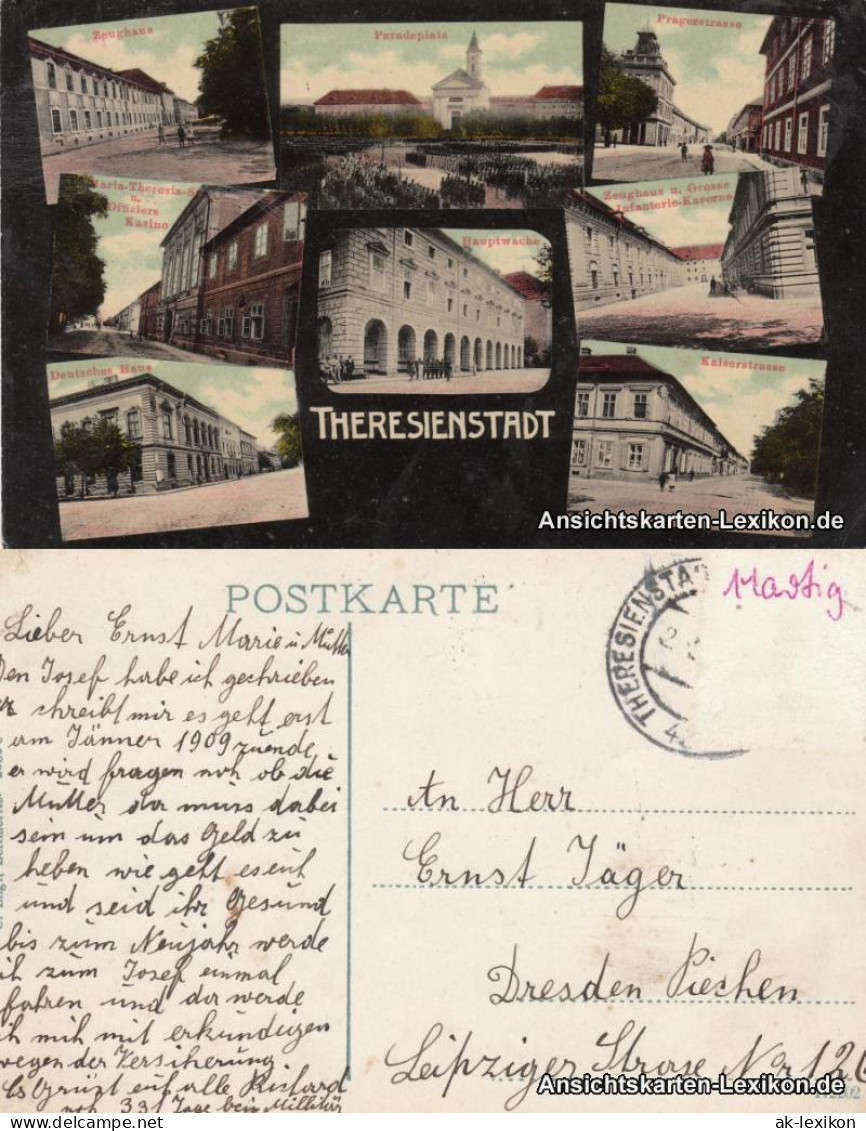 Zeughaus
Paradeplatz
Pragerstrasse
Maria-Theresia-S
u.
Offiziers
Kasino
Hauptwache
Zeughaus u. Grosse
Infanterie-Kaserne
Deutsches Haus
THERESIENSTADT
Kaiserstrasse
Ansichtskarten-Lexikon.de
POSTKARTE
THERESIENSTA
Lieber Ernst Marie u Mutter
Den Josef habe ich geschrieben
er schreibt mir es geht erst
am Jänner 1909 zuende,
er wird fragen noh ob die
Mutter da muss dabei
sein um das Geld zu
heben wie geht es euh
und seid ihr Gesund
bis zum Neujahr werde
ih zum Josef einmal
fahren und da werde
ih mih mit erkündigen
wegen der Versiherung.
Es Grüzt euh alle Rishard
noh 331 Tage beim Militär
An Herr
Ernst Jäger
Dresden Pieschen
Leipziger Strase Nr 126
Ansichtskarten-Lexikon.de
ak-lexikon